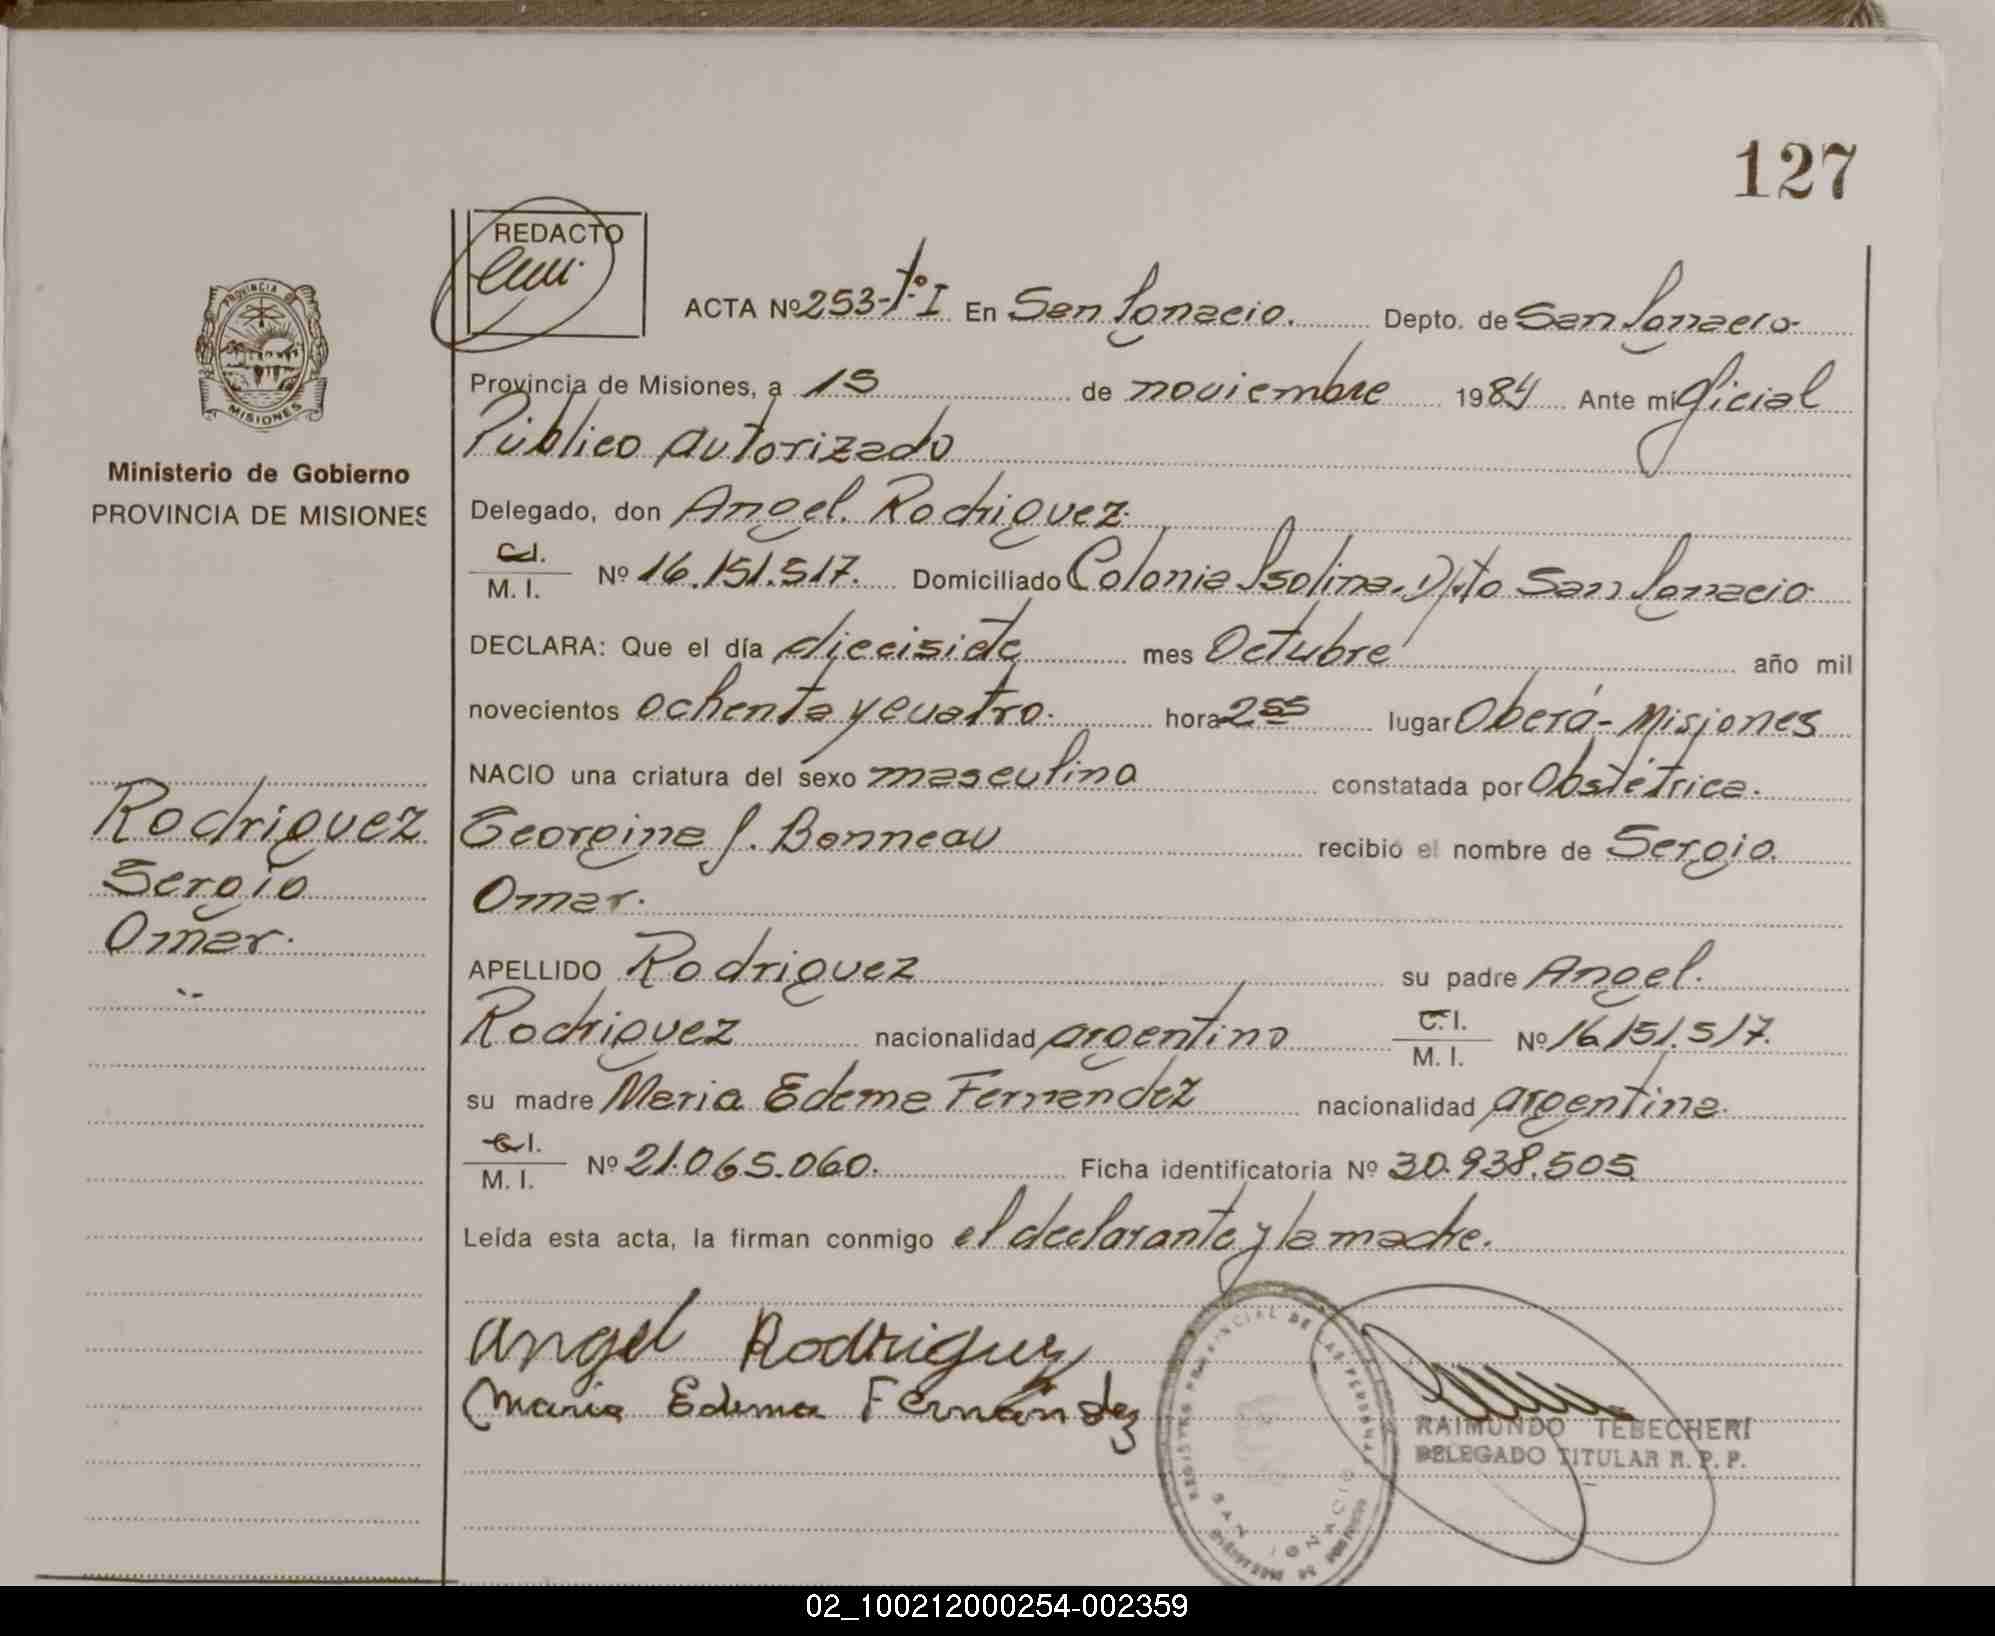 127
REDACTO
PROVINCIA DE
MISIONES
Ministerio de Gobierno
PROVINCIA DE MISIONES
Rodriguez
Sergio
Omar.
ACTA Nº 253-Tº I En San Ignacio. Depto. de San Ignacio
Provincia de Misiones, a 15 de noviembre 1984 Ante mí Oficial
Público autorizado
Delegado, don Angel Rodriguez
C.I. / M. I. Nº 16.151.517. Domiciliado Colonia Isolina. Dpto San Ignacio
DECLARA: Que el día diecisiete mes Octubre año mil
novecientos ochenta y cuatro. hora 2 55 lugar Oberá - Misiones
NACIO una criatura del sexo masculino constatada por Obstétrica.
Georgina J. Bonneau recibió el nombre de Sergio
Omar.
APELLIDO Rodriguez su padre Angel
Rodriguez nacionalidad argentino C.I. / M. I. Nº 16.151.517.
su madre Maria Edema Fernandez nacionalidad argentina.
C.I. / M. I. Nº 21.065.060. Ficha identificatoria Nº 30.938.505
Leída esta acta, la firman conmigo el declarante y la madre.
Angel Rodriguez
Maria Edema Fernandez
REGISTRO PROVINCIAL DE LAS PERSONAS
SAN IGNACIO
RAIMUNDO TEBECHERI
DELEGADO TITULAR R. P. P.
02_100212000254-002359